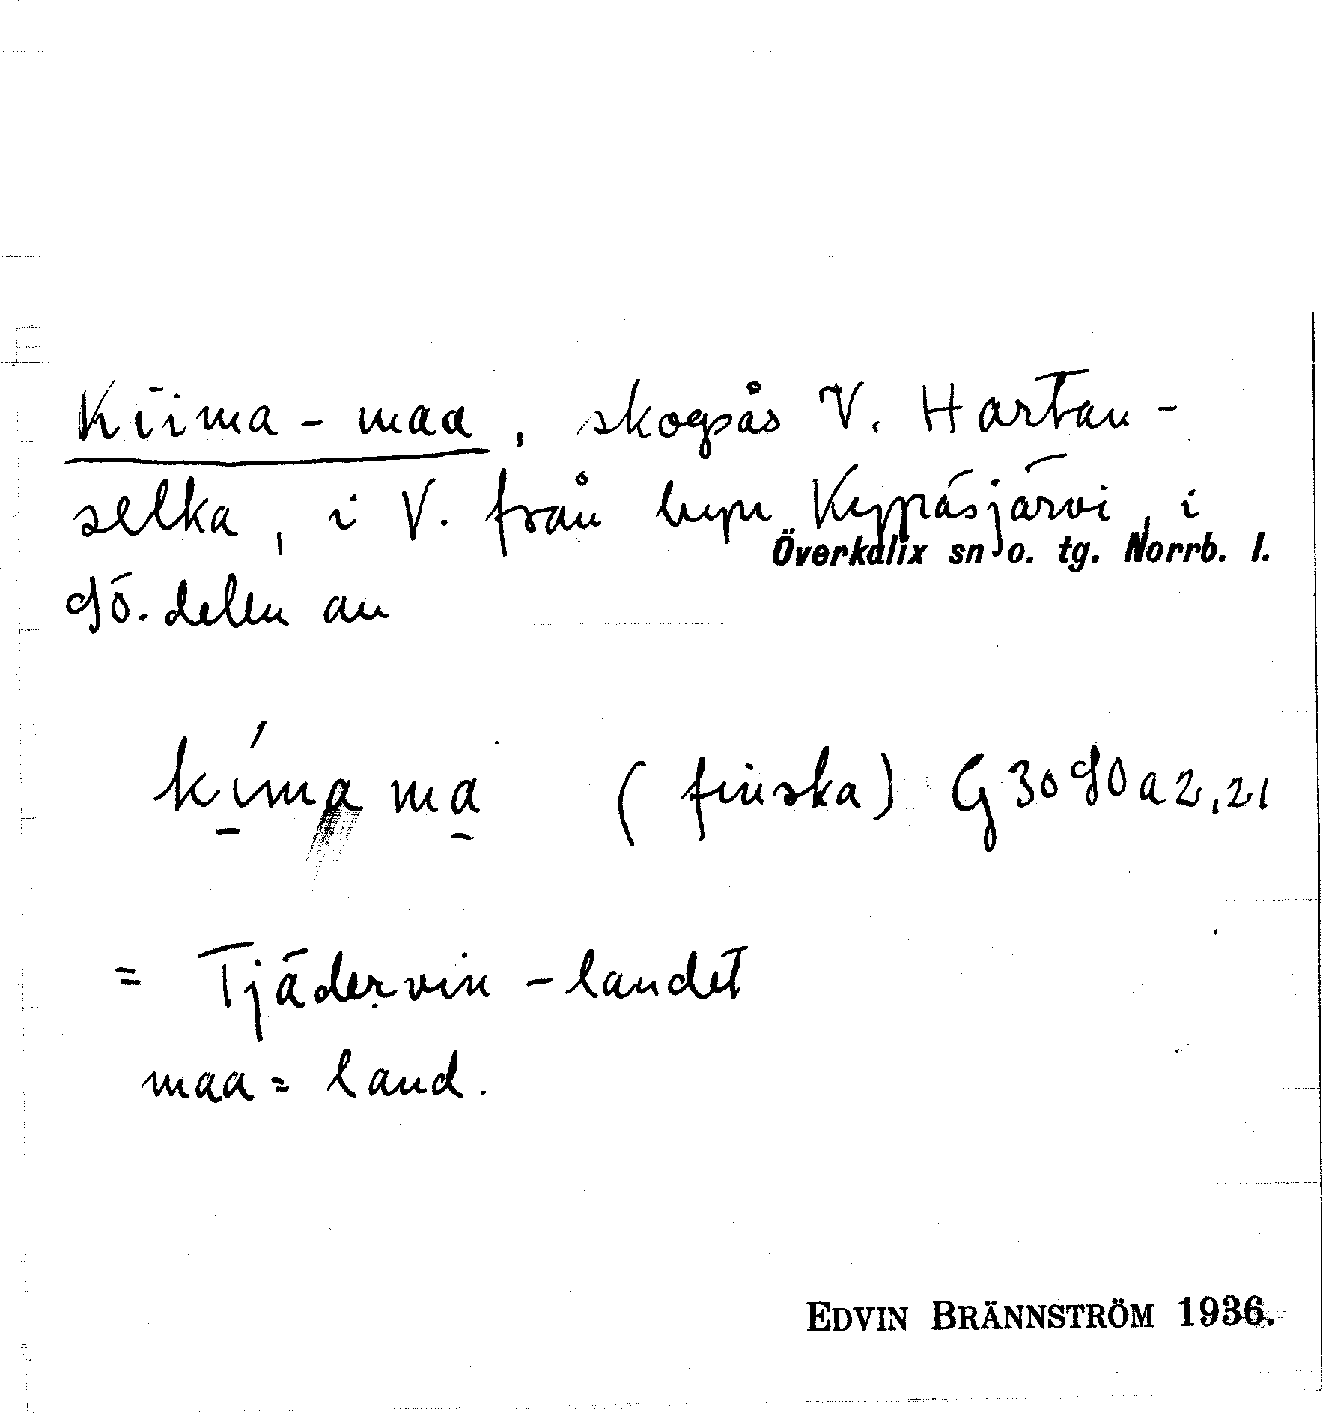 Kiima-maa, skogsås V. Hartau-
selka, i V. från byn Kypäsjärvi, i
Överkalix sn o. tg. Norrb. l.
9ö. delen av
kíma ma (finska) G 3090 a 2,21
= Tjädervin-landet
maa = land.
EDVIN BRÄNNSTRÖM 1936.